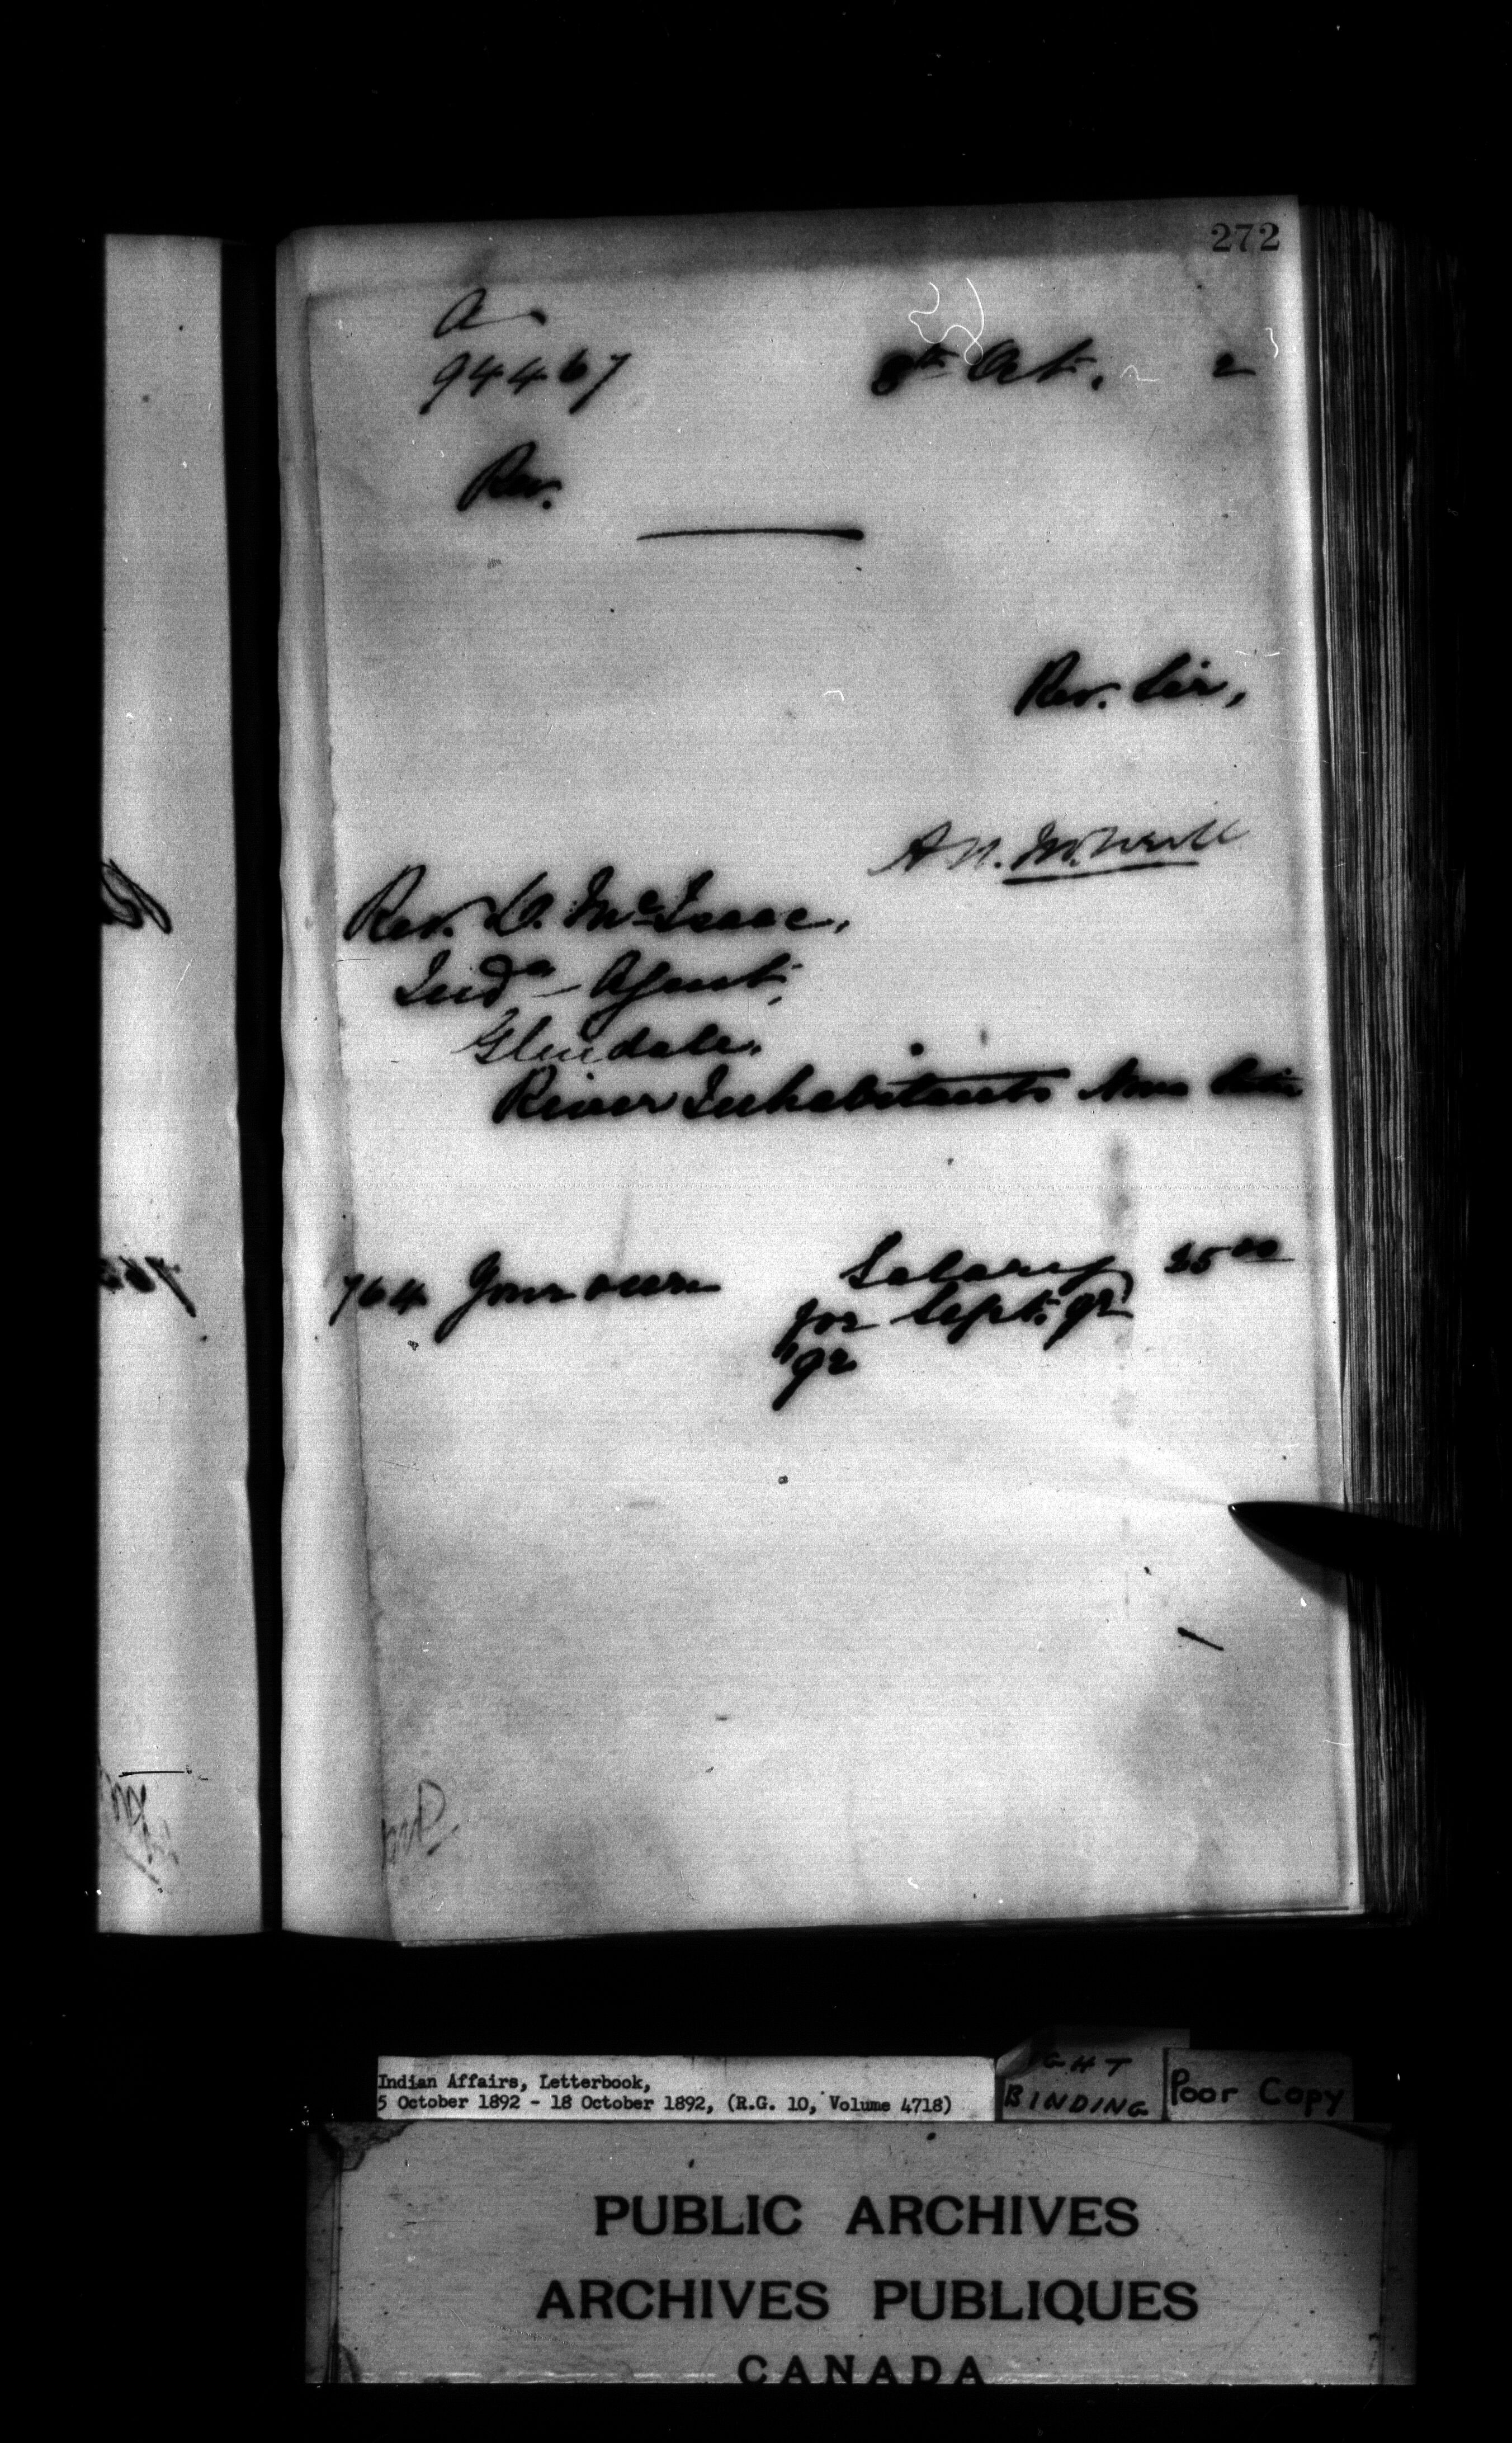 272
A
94467
8th Oct. 2
Rev.
Rev. Sir,
A N. McNeill
Rev. D. McIsaac,
Indn Agent,
Glendale.
River Inhabitants Nova Scotia
764 Your own Salary 25 00
for Sept. qr
'92
Indian Affairs, Letterbook,
5 October 1892 - 18 October 1892, (R.G. 10, Volume 4718)
GHT
BINDING
Poor Copy
PUBLIC ARCHIVES
ARCHIVES PUBLIQUES
CANADA